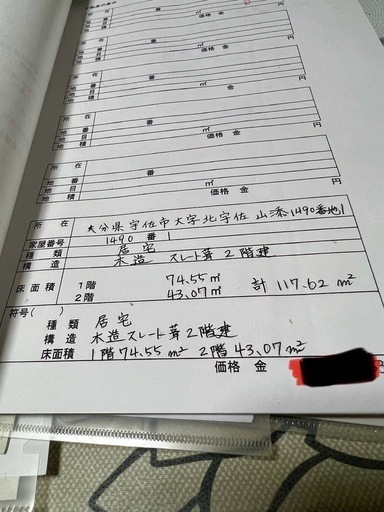 番 ㎡ 円
価格 金
所在
地番 番
地目 ㎡ 円
地積 価格 金
所在
地番 番
地目 ㎡ 円
地積 金
所在
地番 番
地目 ㎡ 円
地積 価格 金
所在
地番 番
地目 ㎡ 円
地積 価格 金
所在 大分県宇佐市大字北宇佐 山添1490番地1
家屋番号 1490 番 1
種類 居宅
構造 木造 スレート葺 2階建
床面積 1階 74.55㎡
2階 43.07㎡ 計 117.62 m²
符号( )
種類 居宅
構造 木造スレート葺2階建
床面積 1階74.55 m² 2階43.07 m²
価格 金